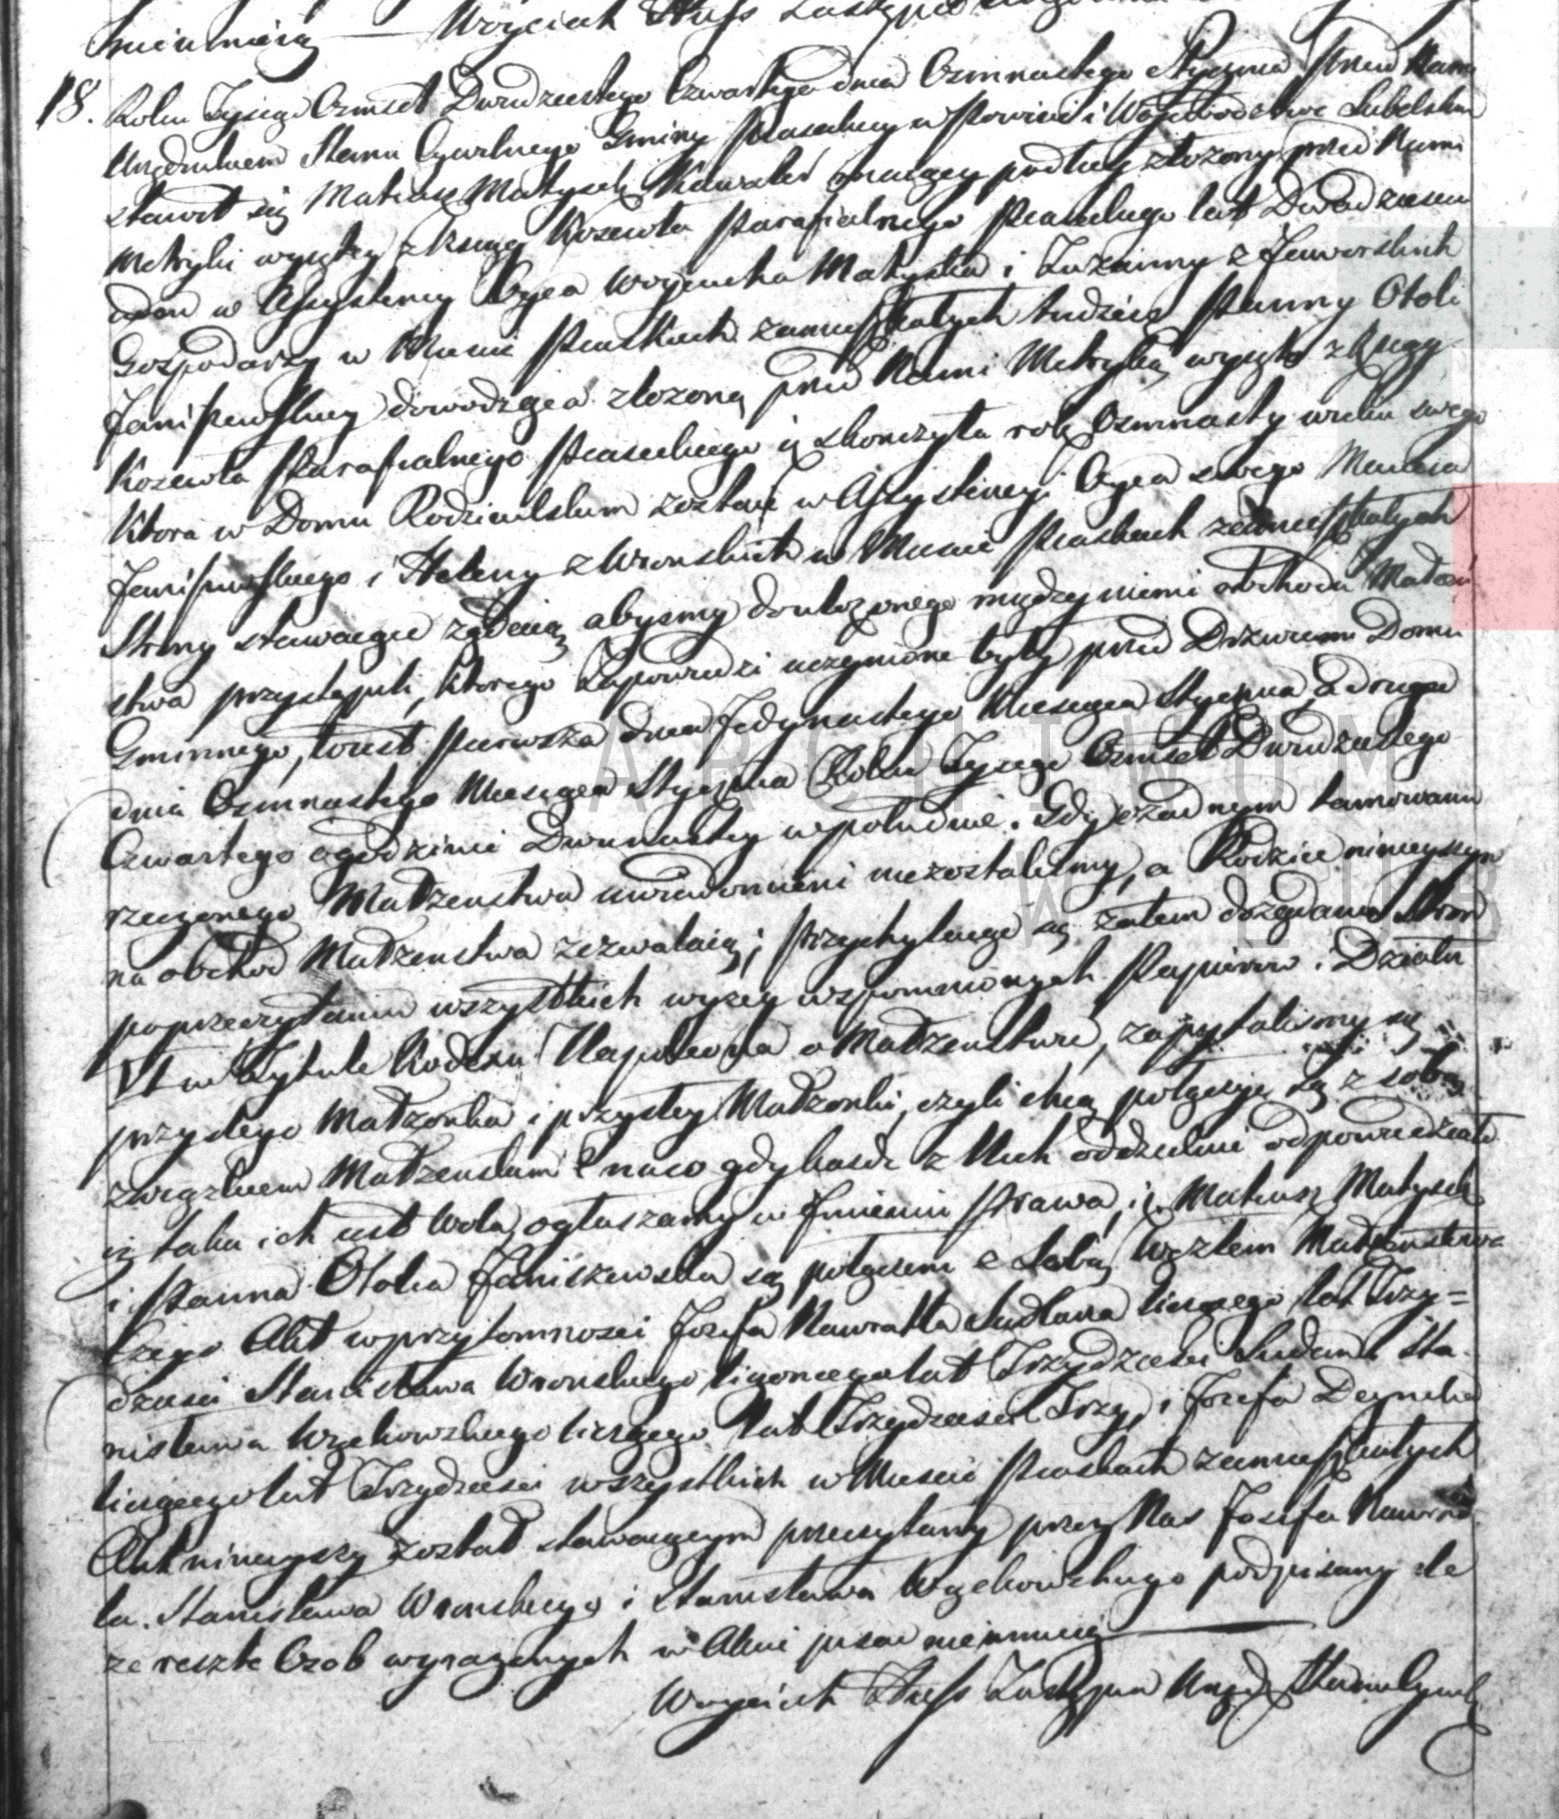 nieumieią — Woyciech Huss Zastępca
18. Roku Tysiąc Osmset Dwudziestego Czwartego dnia Osmnastego Stycznia Przed Nami
Urzędnikiem Stanu Cywilnego Gminy Piaseckiey w Powiecie i Woiewodztwie Lubelskim
stawił się Mateusz Matysek Kawaler maiący podług złożoney przed Nami
Metryki wyiętey z Księgi Koscioła Parafialnego Piaseckiego lat Dwadziescia
ieden w Assystencyi Oyca Woyciecha Matyska i Zuzanny z Jaworskich
Gospodarzy w Miescie Piaskach zamieszkałych tudzież Panny Otoli
Janiszewskiey dowodząca złożoną przed Nami Metryką wyiętą z Księgi
Koscioła Parafialnego Piaseckiego iż skonczyła rok Osmnasty wieku swego
ktora w Domu Rodzicielskim zostaie w Assystencyi Oyca swego
Janiszewskiego i Heleny z Wronskich w Miescie Piaskach zamieszkałych
Strony stawaiące żądaią abysmy do ułożonego między niemi obchodu Małżeń
stwa przystąpili, ktorego Zapowiedzi uczynione były przed Drzwiami Domu
Gminnego, to iest pierwsza dnia Jedynastego Miesiąca Stycznia, a druga
dnia Osmnastego Miesiąca Stycznia Roku Tysiąc Osmset Dwudziestego
Czwartego o godzinie Dwunastey w południe. Gdy o żadnym tamowaniu
rzeczonego Małżenstwa uwiadomieni niezostalismy, a Rodzice ninieyszym
na obchod Małżenstwa zezwalaią; przychylaiąc się zatem do żądania Stron
po przeczytaniu wszystkich wyżey wspomnionych Papierow i Działu
VI w Tytule Kodexu Napoleona o Małżenstwie, zapytalismy się
przyszłego Małżonka i przyszłey Małżonki, czyli chcą połączyć się z sobą
związkiem Małżenskim? na co gdy każde z Nich oddzielnie odpowiedziało
iż taka ich iest Wola, ogłaszamy w Imieniu Prawa, iż Mateusz Matysek
i Panna Otolia Janiszewska są połączeni z Sobą Węzłem Małżenstwa
Czego Akt w przytomnosci Jozefa Nawratla liczącego lat Trzy=
dziesci Stanisława Wronskiego liczącego lat Trzydziesci Siedem Sta
nisława Wychowskiego liczącego lat Trzydziesci Trzy, i Jozefa Deyneka
liczącego lat Trzydziesci wszystkich w Miescie Piaskach zamieszkałych
Akt ninieyszy został stawaiącym przeczytany przez Nas Jozefa Nawrat
la. Stanisława Wronskiego i Stanisława Wychowskiego podpisany ile
że reszta Osob wyrażonych w Akcie pisać nieumieią
Woyciech Huss Zastępca Urzęd Stanu Cywil
ARCHIWUM
W LUB